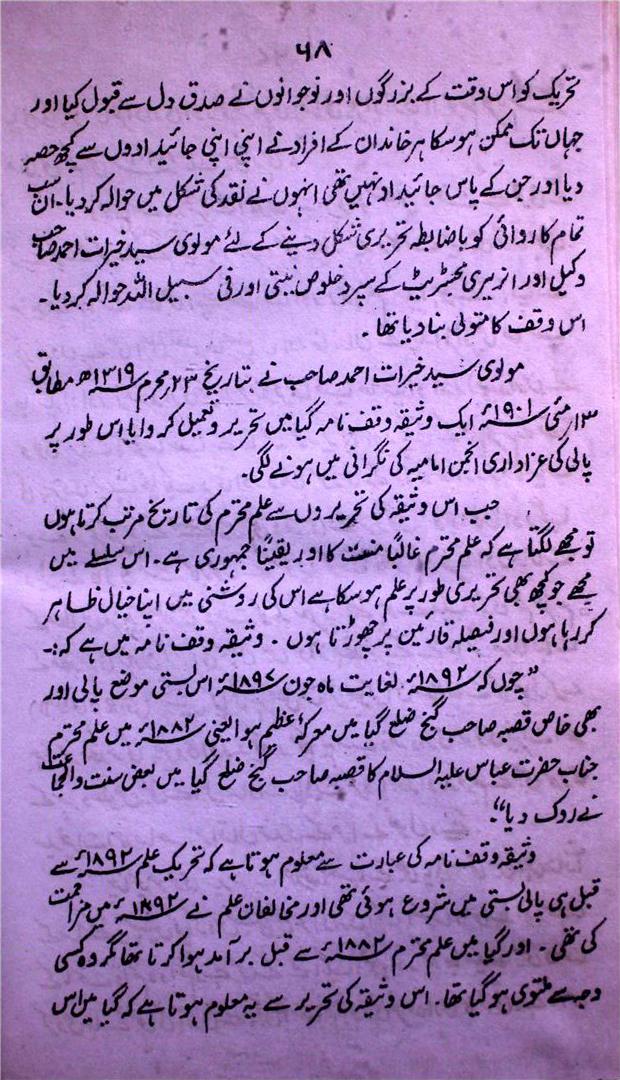 ۶۸
تحریک کو اس وقت کے بزرگوں اور نوجوانوں نے صدق دل سے قبول کیا اور
جہاں تک ممکن ہو سکا ہر خاندان کے افراد نے اپنی اپنی جائیدادوں سے کچھ حصہ
دیا اور جن کے پاس جائیداد نہیں تھی انہوں نے نقد کی شکل میں حوالہ کر دیا۔ ان سب
تمام کاروائی کو باضابطہ تحریری شکل دینے کے لئے مولوی سید خیرات احمد صاحب
وکیل اور انریری مجسٹریٹ کے سپرد خلوص نیتی اور فی سبیل اللہ حوالہ کر دیا۔
اس وقف کا متولی بنا دیا تھا۔
مولوی سید خیرات احمد صاحب نے بتاریخ ۲۳؍محرم ۱۳۱۹ھ مطابق
۱۳؍مئی ۱۹۰۱ء ایک وثیقہ وقف نامہ گیا میں تحریر و تعمیل کروایا اس طور پر
پالی کی عزاداری انجمن امامیہ کی نگرانی میں ہونے لگی۔
جب اس وثیقہ کی تحریروں سے علم محترم کی تاریخ مرتب کرتا ہوں
تو مجھے لگتا ہے کہ علم محترم غالباً منت کا اور یقیناً جمہوری ہے۔ اس سلسلے میں
مجھے جو کچھ بھی تحریری طور پر علم ہو سکا ہے اس کی روشنی میں اپنا خیال ظاہر
کر رہا ہوں اور فیصلہ قارئین پر چھوڑتا ہوں۔ وثیقہ وقف نامہ میں ہے کہ:۔
”چوں کہ ۱۸۹۲ء لغایت ماہ جون ۱۸۹۷ء اس بستی موضع پالی اور
بھی خاص قصبہ صاحب گنج ضلع گیا میں معرکۂ عظیم ہوا یعنی ۱۸۸۲ء میں علم محترم
جناب حضرت عباس علیہ السلام کا قصبہ صاحب گنج ضلع گیا میں بعض سنت والجماعت
نے روک دیا“۔
وثیقہ وقف نامہ کی عبارت سے معلوم ہوتا ہے کہ تحریک علم ۱۸۹۲ء سے
قبل ہی پالی بستی میں شروع ہوئی تھی اور مخالفان علم نے ۱۸۹۲ء میں مزاحمت
کی تھی۔ اور گیا میں علم محترم ۱۸۸۲ء سے قبل برآمد ہوا کرتا تھا گر وہ کسی
وجہ سے ملتوی ہو گیا تھا۔ اس وثیقہ کی تحریر سے یہ معلوم ہوتا ہے کہ گیا میں اس